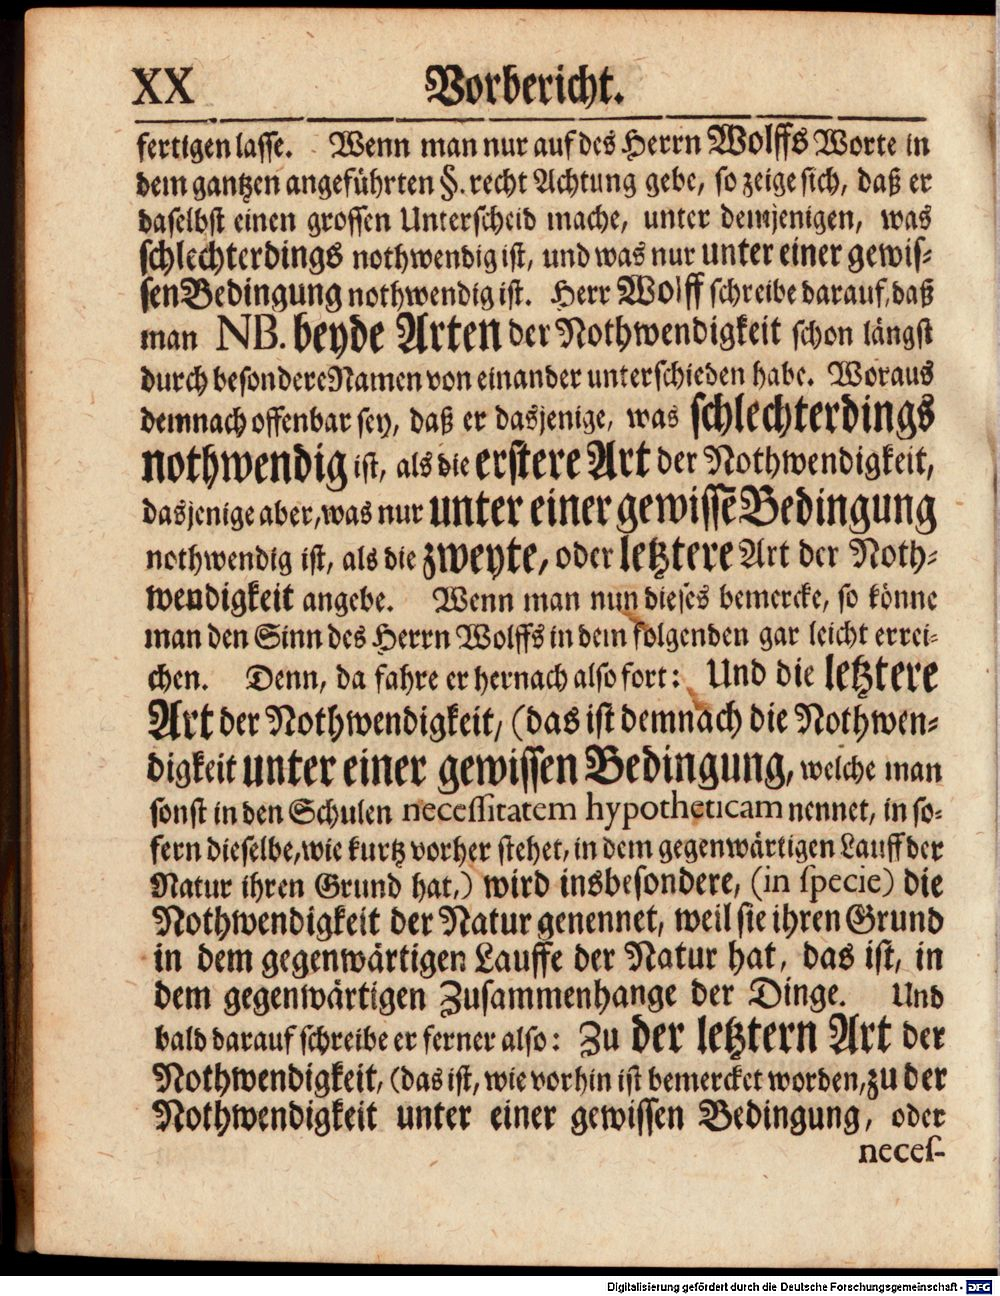 XX Vorbericht.
fertigen lasse. Wenn man nur auf des Herrn Wolffs Worte in
dem gantzen angeführten §. recht Achtung gebe, so zeige sich, daß er
daselbst einen grossen Unterscheid mache, unter demjenigen, was
schlechterdings nothwendig ist, und was nur unter einer gewis-
sen Bedingung nothwendig ist. Herr Wolff schreibe darauf, daß
man NB. beyde Arten der Nothwendigkeit schon längst
durch besondere Namen von einander unterschieden habe. Woraus
demnach offenbar sey, daß er dasjenige, was schlechterdings
nothwendig ist, als die erstere Art der Nothwendigkeit,
dasjenige aber, was nur unter einer gewissē Bedingung
nothwendig ist, als die zweyte, oder letztere Art der Noth-
wendigkeit angebe. Wenn man nun dieses bemercke, so könne
man den Sinn des Herrn Wolffs in dem folgenden gar leicht errei-
chen. Denn, da fahre er hernach also fort: Und die letztere
Art der Nothwendigkeit, (das ist demnach die Nothwen-
digkeit unter einer gewissen Bedingung, welche man
sonst in den Schulen necessitatem hypotheticam nennet, in so-
fern dieselbe, wie kurtz vorher stehet, in dem gegenwärtigen Lauff der
Natur ihren Grund hat,) wird insbesondere, (in specie) die
Nothwendigkeit der Natur genennet, weil sie ihren Grund
in dem gegenwärtigen Lauffe der Natur hat, das ist, in
dem gegenwärtigen Zusammenhange der Dinge. Und
bald darauf schreibe er ferner also: Zu der letztern Art der
Nothwendigkeit, (das ist, wie vorhin ist bemercket worden, zu der
Nothwendigkeit unter einer gewissen Bedingung, oder
neces-
Digitalisierung gefördert durch die Deutsche Forschungsgemeinschaft - DFG